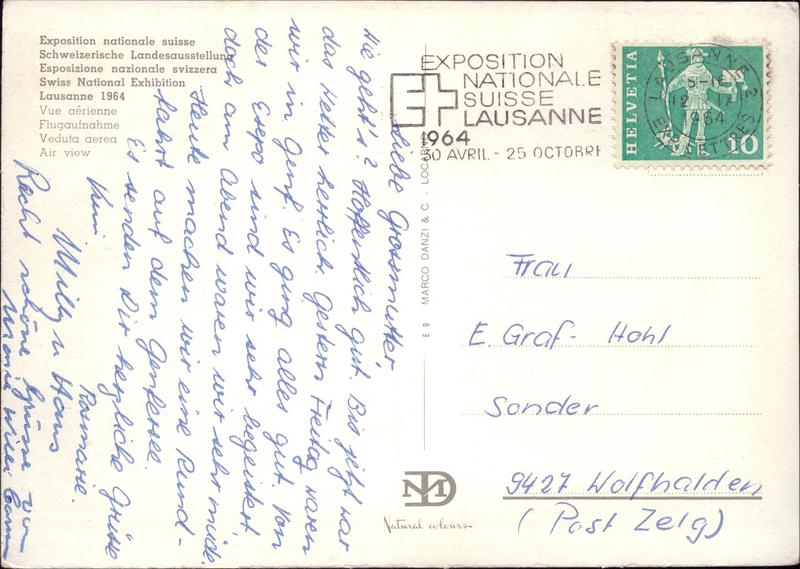 Exposition nationale suisse
Schweizerische Landesausstellung
Esposizione nazionale svizzera
Swiss National Exhibition
Lausanne 1964
Vue aérienne
Flugaufnahme
Veduta aerea
Air view
Liebe Grossmutter
Wie geht's? Hoffentlich gut. Bis jetzt war
das Wetter herrlich. Gestern Freitag waren
wir in Genf. Es ging alles gut. Von
der Expo sind wir sehr begeistert,
doch am Abend waren wir sehr müde.
Heute machen wir eine Rund-
fahrt auf dem Genfersee.
Es senden Dir herzliche Grüsse
Rosmarie
Willy u Hans
Recht schöne Grüsse von
E 9 MARCO DANZI & C. - LOCARNO
MD
Natural colours
EXPOSITION
NATIONALE
SUISSE
LAUSANNE
1964
30 AVRIL - 25 OCTOBRE
LAUSANNE 2
1964
EXP. LETTRES
HELVETIA
10
Frau
E. Graf-Hohl
Sonder
9427 Wolfhalden
(Post Zelg)